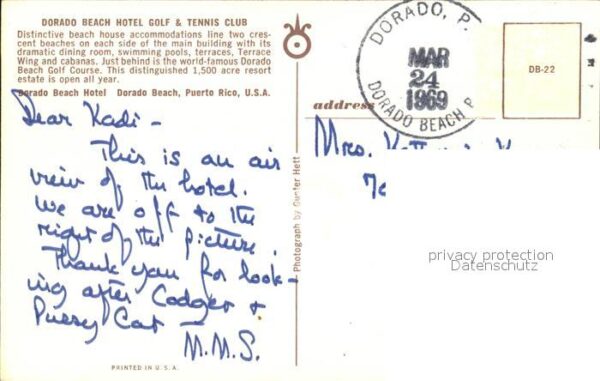 DORADO BEACH HOTEL GOLF & TENNIS CLUB
Distinctive beach house accommodations line two cres-
cent beaches on each side of the main building with its
dramatic dining room, swimming pools, terraces, Terrace
Wing and cabanas. Just behind is the world-famous Dorado
Beach Golf Course. This distinguished 1,500 acre resort
estate is open all year.
Dorado Beach Hotel Dorado Beach, Puerto Rico, U.S.A.
Dear Kadi -
This is an air
view of the hotel.
We are off to the
right of the picture.
Thank you for look-
ing after Codger &
Pussy Cat
M.M.S.
PRINTED IN U.S.A.
Photograph by Gunter Hett
DORADO, P.
MAR
24
1969
DORADO BEACH P
DB-22
address
Mrs.
privacy protection
Datenschutz